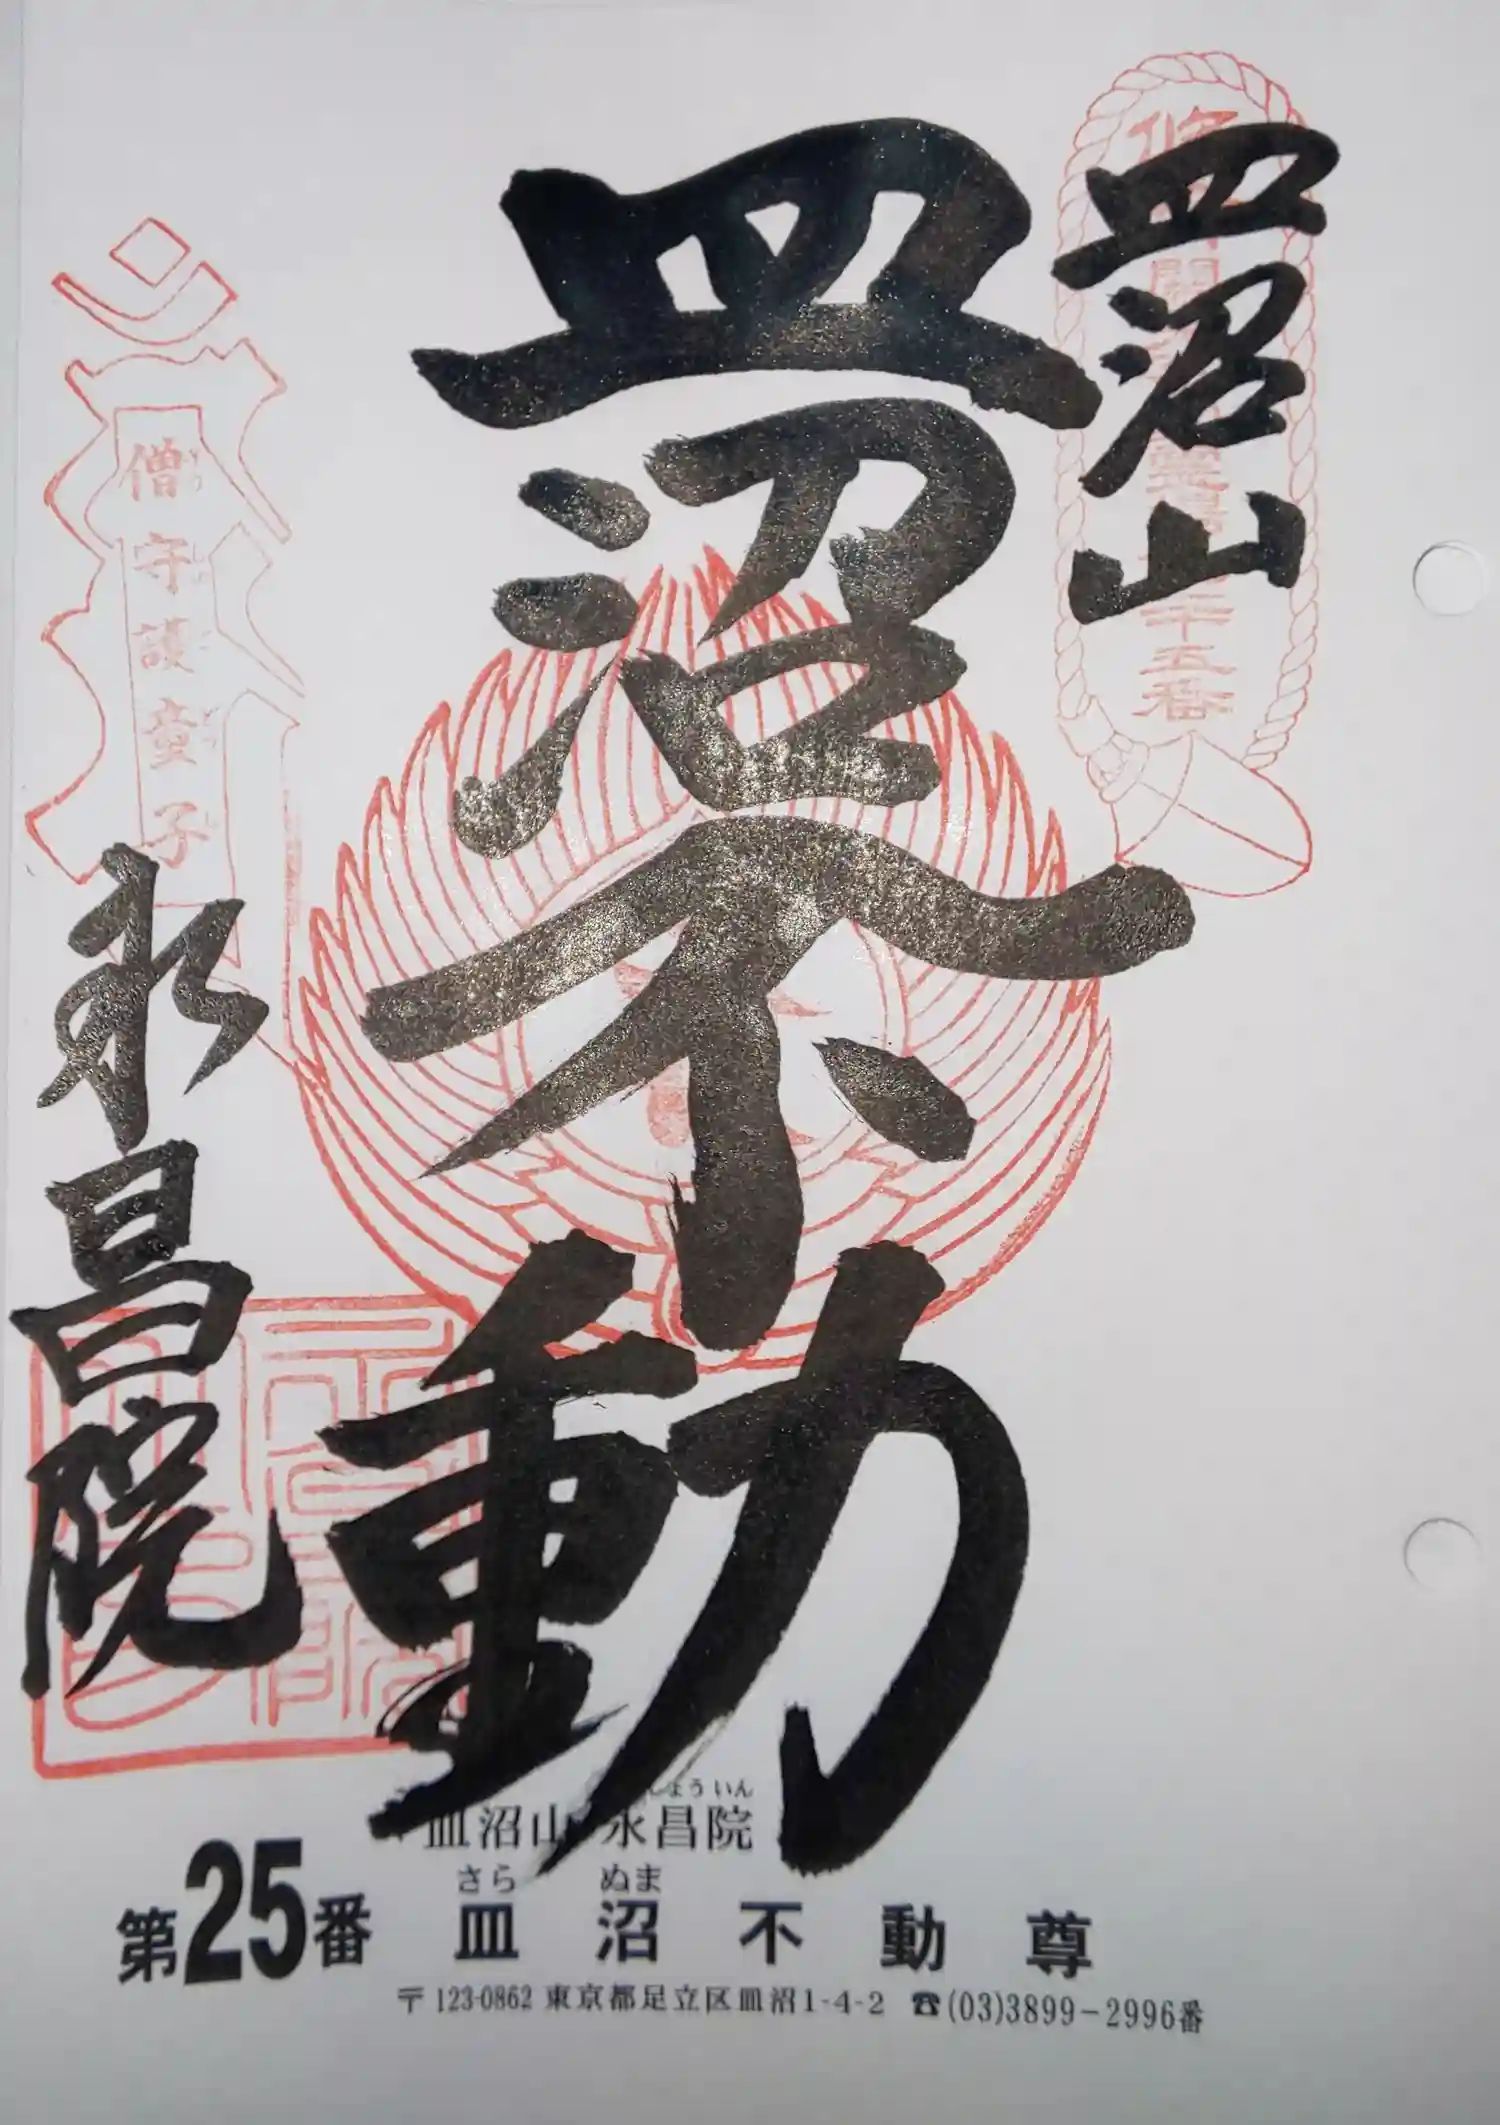 皿沼山
皿沼不動
永昌院
僧守護童子
しょういん
皿沼山 永昌院
さら ぬま
第25番 皿沼不動尊
〒123-0862 東京都足立区皿沼1-4-2 ☎(03)3899-2996番